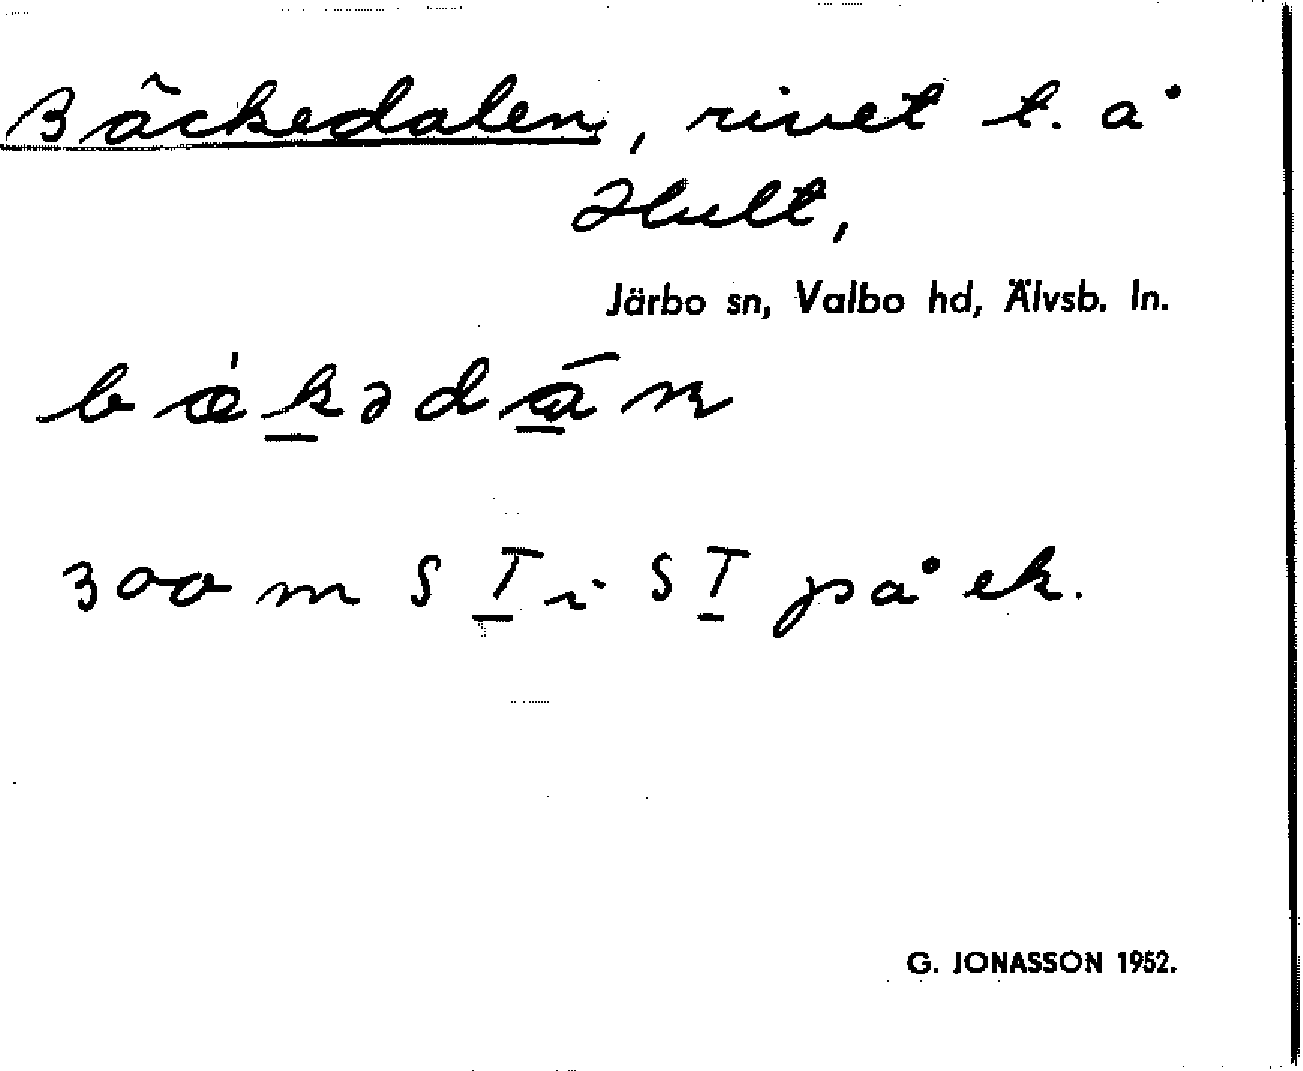 Bäckedalen, rivet t. å
Hult,
Järbo sn, Valbo hd, Älvsb. ln.
bækədan
300 m S I i SI på ek.
G. JONASSON 1952.